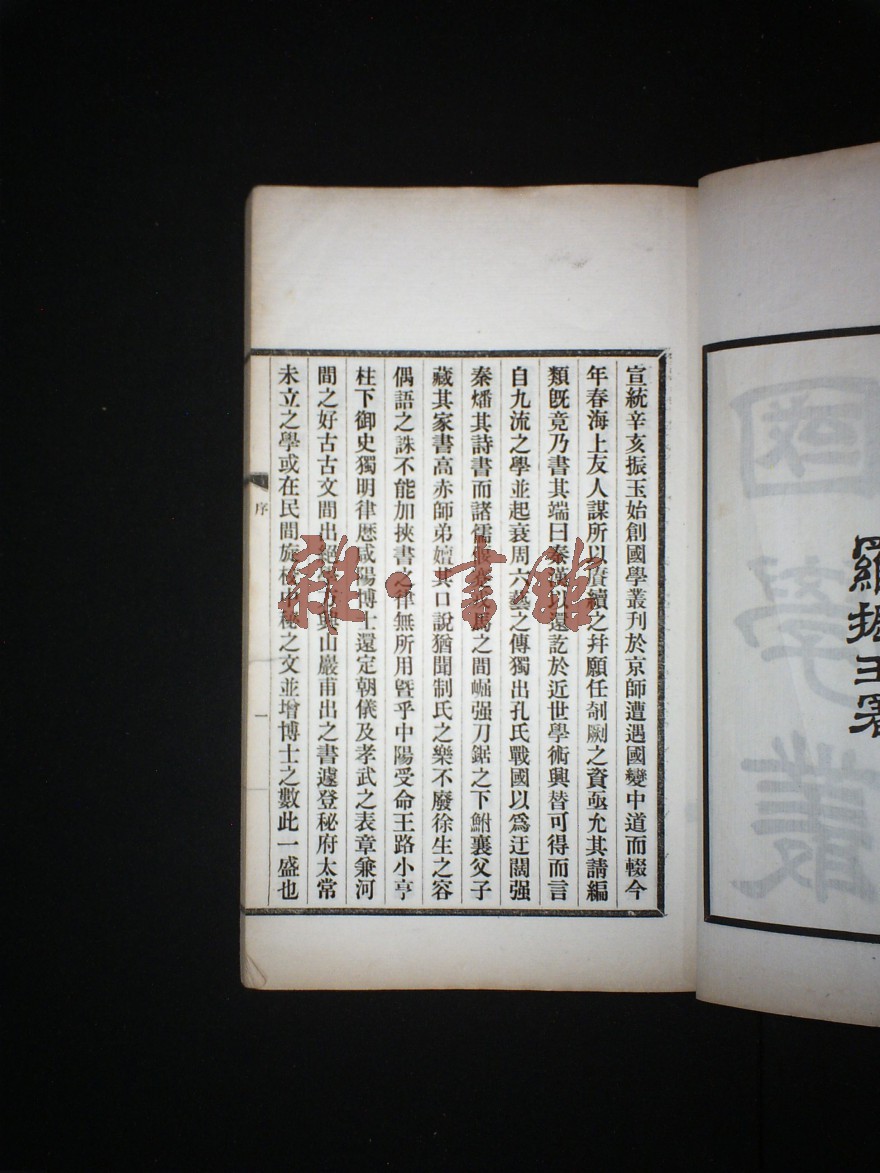 羅振玉署
國學叢
宣統辛亥振玉始創國學叢刊於京師遭遇國變中道而輟今
年春海上友人謀所以賡續之幷願任剞劂之資亟允其請編
類旣竟乃書其端曰秦漢以還訖於近世學術興替可得而言
自九流之學並起衰周六藝之傳獨出孔氏戰國以爲迂闊强
秦燔其詩書而諸儒偃蹇戎馬之間崛强刀鋸之下鮒襄父子
藏其家書高赤師弟嬗其口說猶聞制氏之樂不廢徐生之容
偶語之誅不能加挾書之律無所用曁乎中陽受命王路小亨
柱下御史獨明律厯咸陽博士還定朝儀及孝武之表章兼河
間之好古古文間出絕學方興山巖甫出之書遽登秘府太常
未立之學或在民間旋校中秘之文並增博士之數此一盛也
序
一
雜·書館